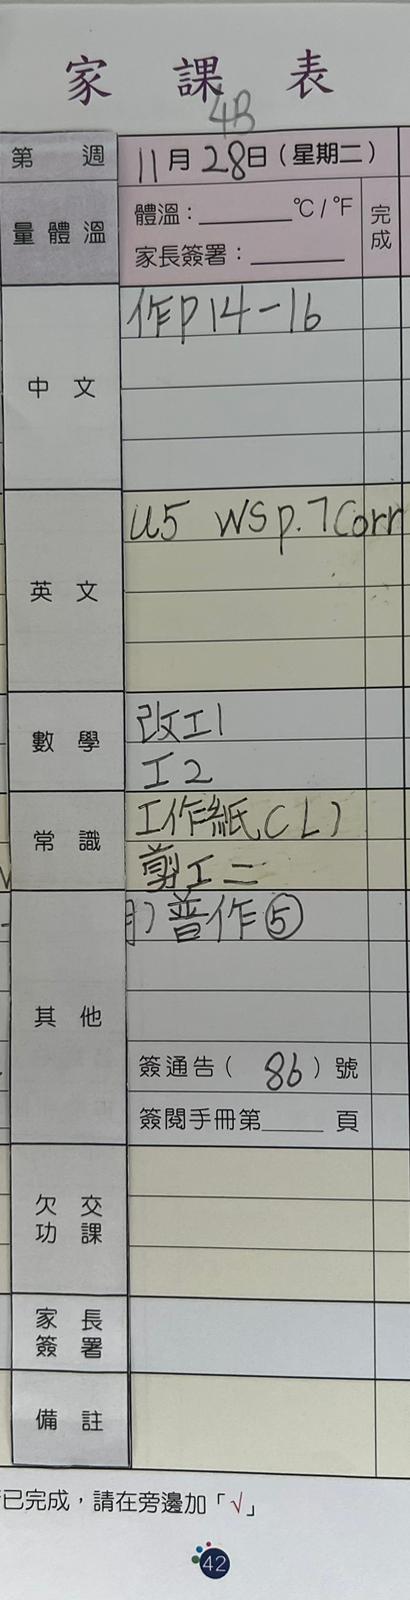 家課表
4B
第 週 11月28日(星期二)
量體溫 體溫：______°C/°F 完成
家長簽署：______
中文 作p14-16
英文 U5 WS p.7 Corr
數學 改工1
工2
常識 工作紙(L)
剪工二
普作⑤
其他
簽通告( 86 )號
簽閱手冊第____頁
欠交功課
家長簽署
備註
已完成，請在旁邊加「√」
42